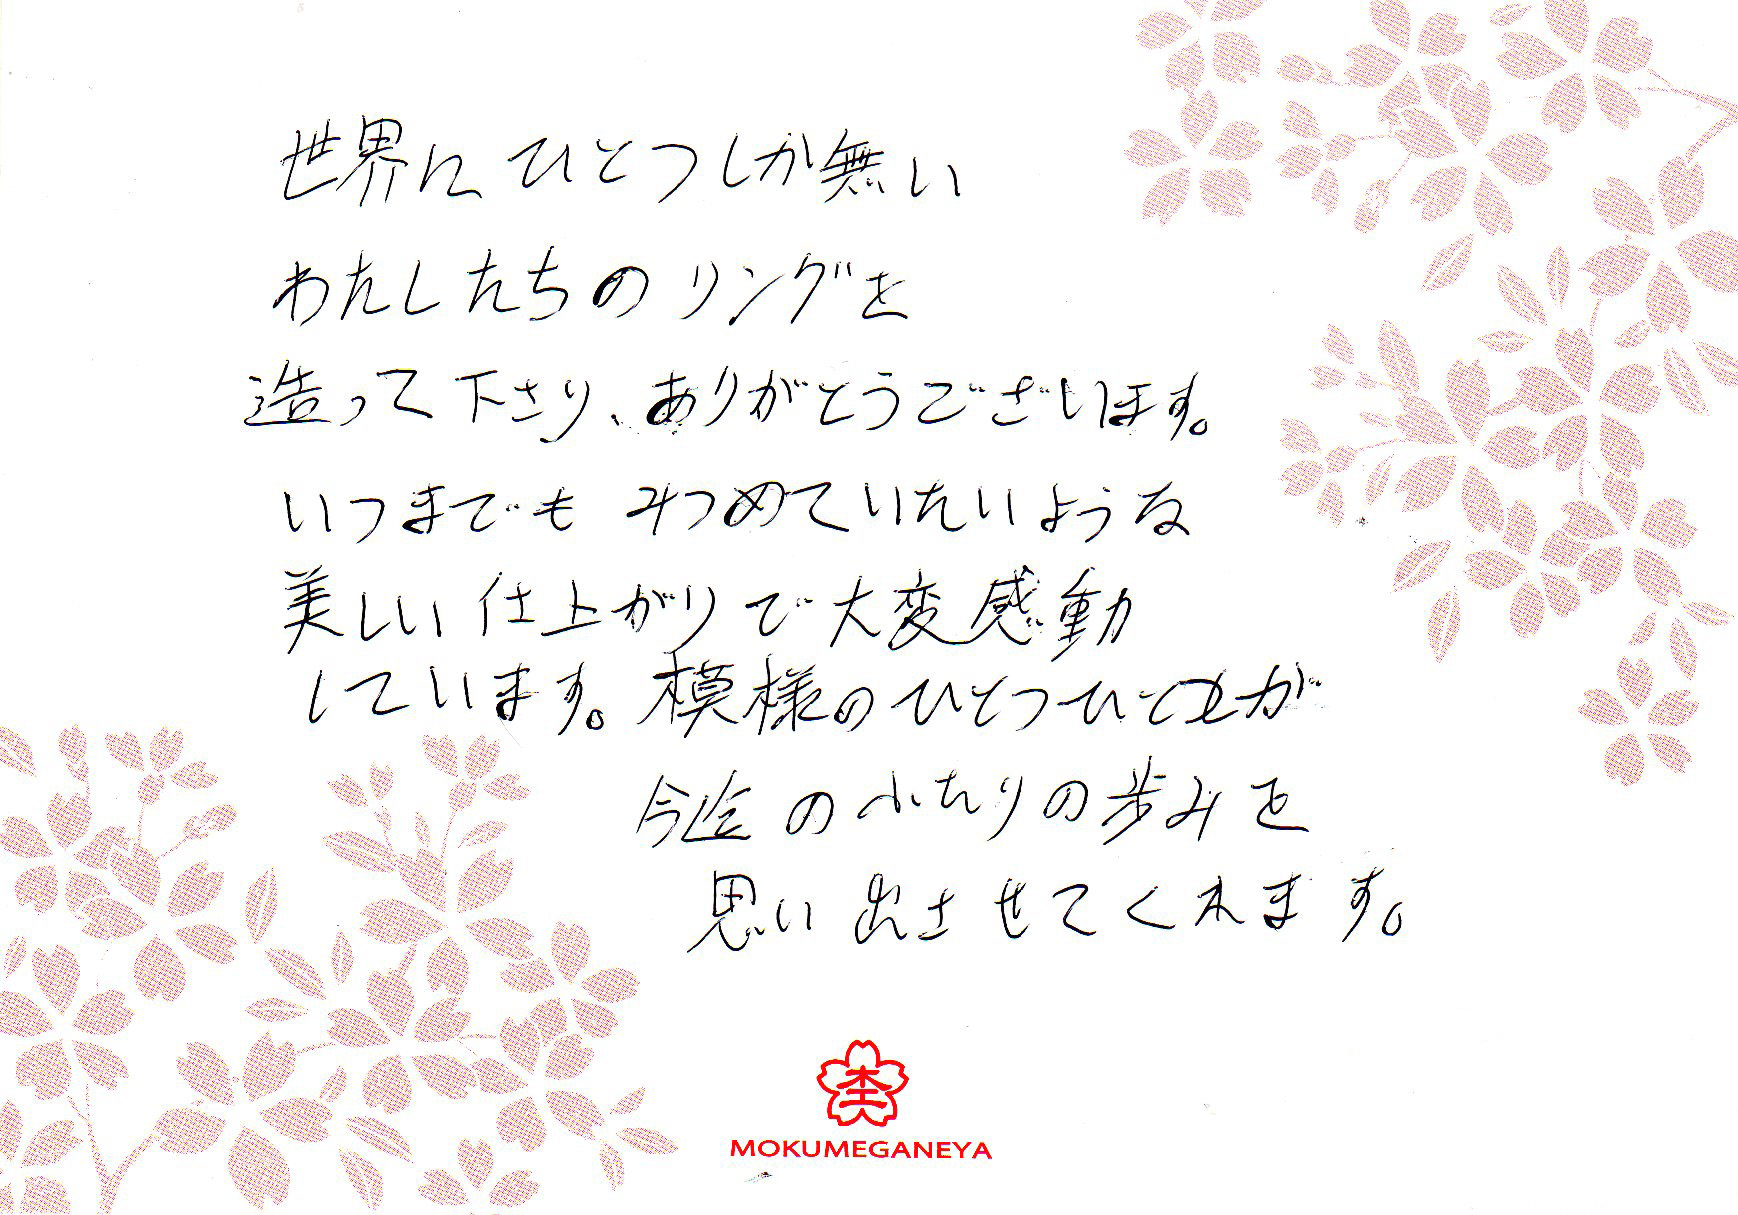 世界にひとつしか無い
わたしたちのリングを
造って下さり、ありがとうございます。
いつまでもみつめていたいような
美しい仕上がりで大変感動
しています。模様のひとつひとつが
今迄のふたりの歩みを
思い出させてくれます。
MOKUMEGANEYA